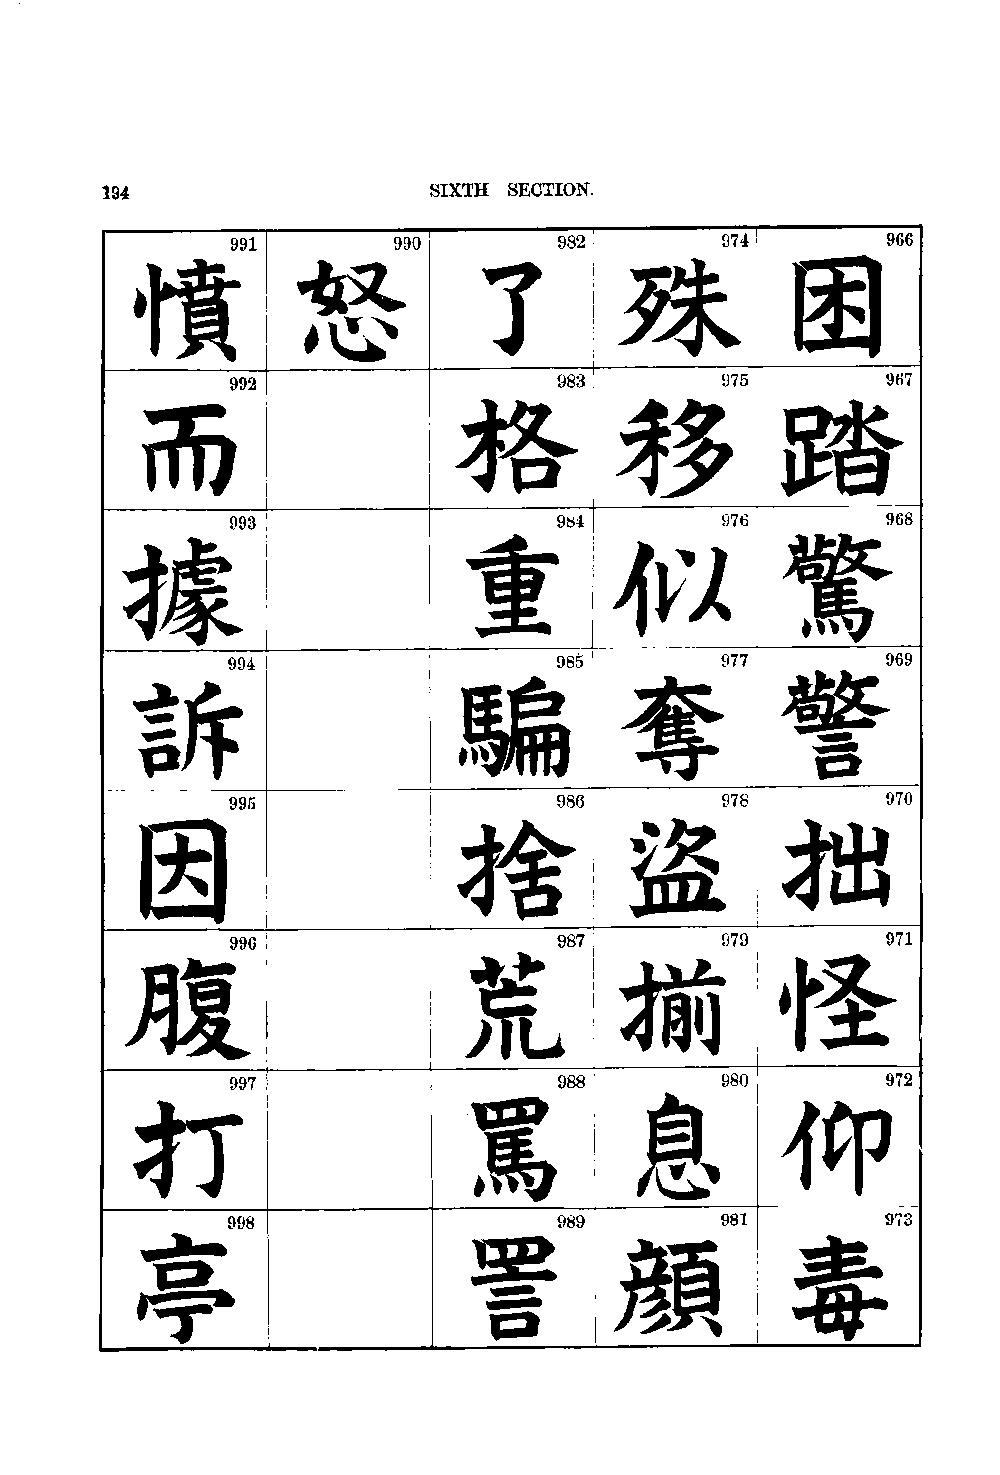 194 SIXTH SECTION.
966 困
967 踏
968 驚
969 警
970 拙
971 怪
972 仰
973 毒
974 殊
975 移
976 似
977 奪
978 盜
979 揃
980 息
981 顔
982 了
983 格
984 重
985 騙
986 捨
987 荒
988 罵
989 詈
990 怒
991 憤
992 而
993 據
994 訴
995 因
996 腹
997 打
998 亭